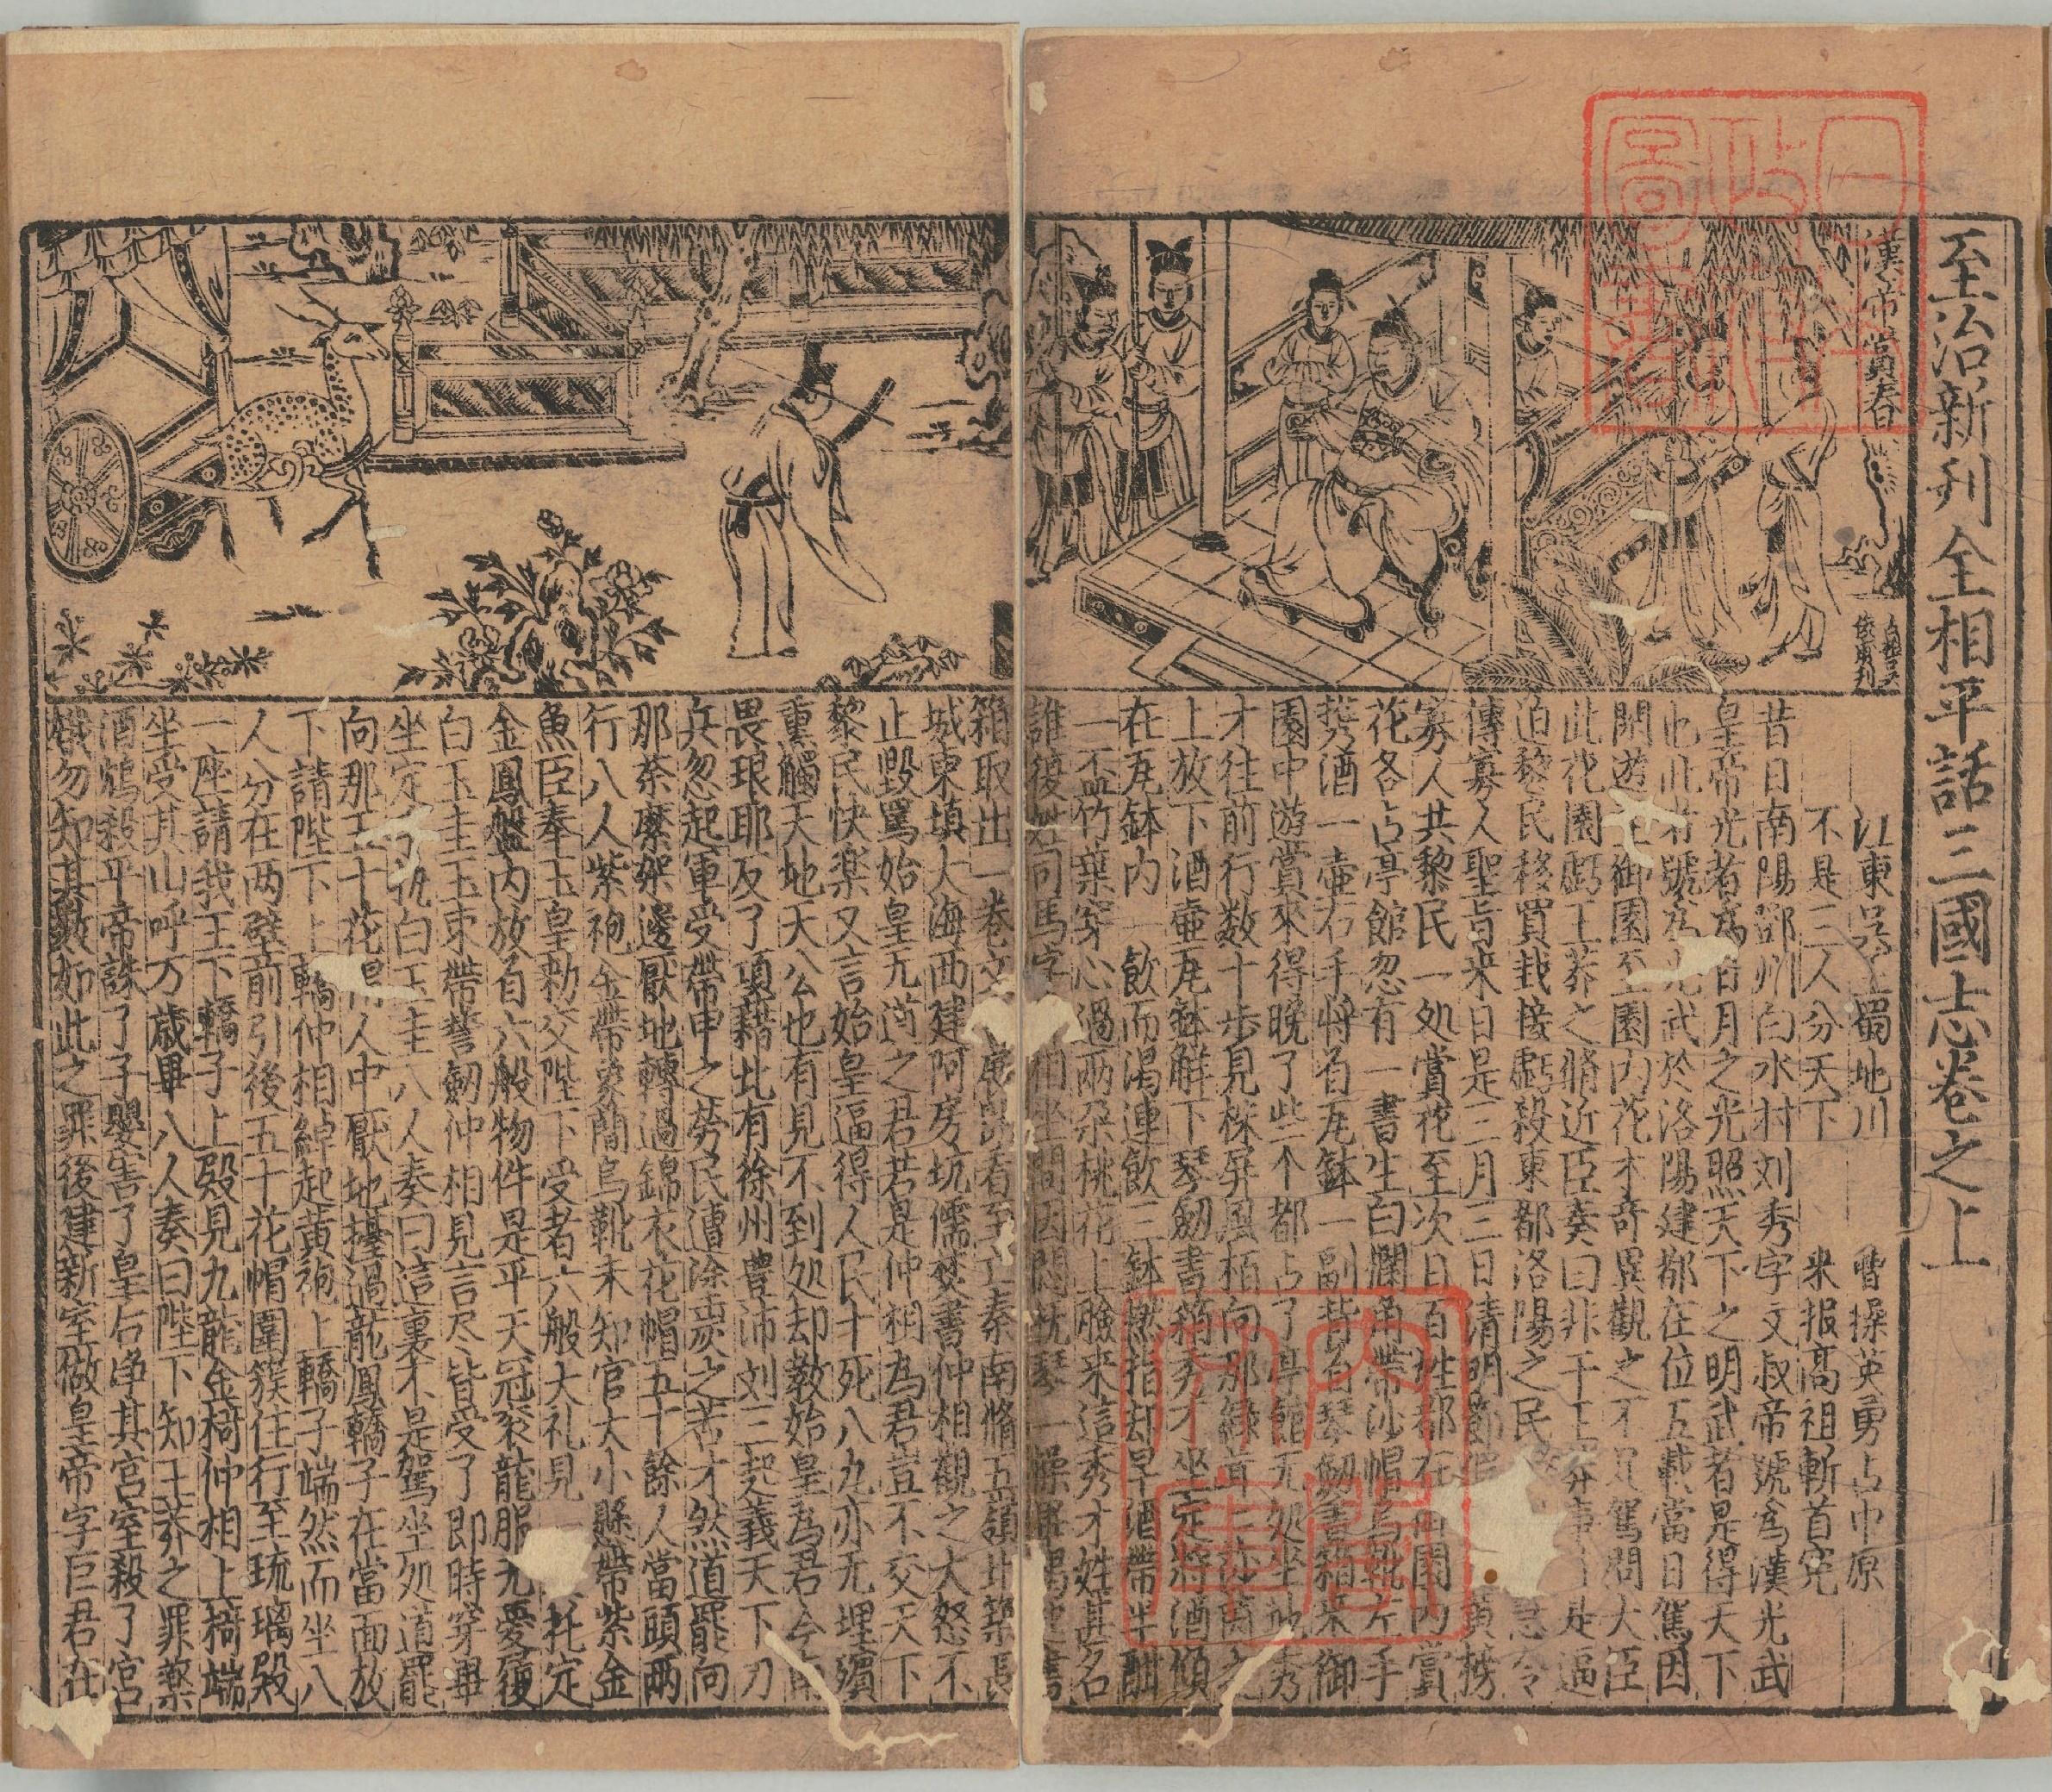 至治新刊全相平話三國志卷之上
漢帝賞春
江東吳土蜀地川
曹操英勇占中原
不是三人分天下
来报髙祖斬首寃
昔日南陽鄧州白水村刘秀字文叔帝號为漢光武
皇帝光者为日月之光照天下之明武者是得天下
也此者號为光武於洛陽建都在位五載當日駕因
閑遊至御園至園内花木奇異觀之不足駕問大臣
此花園虧王莽之脩近臣奏曰非干王莽事是逼
迫黎民移買栽接虧殺東都洛陽之民 急令
傳寡人聖旨来日是三月三日清明節 黄榜
寡人共黎民一処賞花至次日百姓都在 園内賞
花各占亭館忽有一書生白襴角帶沙帽烏靴左手
携酒一壷右手将着瓦鉢一副背着琴劒書箱来御
園中游賞來得晚了些个都占了亭館无処坐地秀
才往前行数十步見株屏風栢向那緑茸茸莎茵之
上放下酒壷瓦鉢解下琴劒書箱秀才坐定将酒傾
在瓦鉢内一飲而渴連飲三鉢撚指却早酒帶半酣
一盃竹葉穿心過两朶桃花上臉来這秀才姓甚名
誰複姓司馬字 相坐間因悶抚琴一操畢揭起書
箱取出一卷文 展開看至亡秦南脩五嶺北築長
城東填大海西建阿房坑儒焚書仲相觀之大怒不
止毀罵始皇无道之君若是仲相为君豈不交天下
黎民快楽又言始皇逼得人民十死八九亦无埋殯
熏觸天地天公也有見不到処却教始皇为君今南
畏琅耶反了項籍北有徐州豊沛刘三起義天下刀
兵忽起軍受帶甲之劳民遭塗炭之苦才然道罷向
那荼蘼架邊厭地轉過錦衣花帽五十餘人當頭两
行八人紫袍金帶象簡烏靴未知官大小懸帶紫金
魚臣奉玉皇勑交陛下受者六般大礼見 托定
金鳳盤内放着六般物件是平天冠衮龍服无憂履
白玉圭玉束帶誓劒仲相見言尽皆受了即時穿畢
坐定手执白玉圭八人奏曰這裏不是駕坐処道罷
向那五十花帽人中厭地擡過龍鳳轎子在當面放
下請陛下上轎仲相綽起黄袍上轎子端然而坐八
人分在两壁前引後五十花帽圍簇住行至琉璃殿
一座請我王下轎子上殿見九龍金椅仲相上椅端
坐受其山呼万歳畢八人奏曰陛下知王莽之罪藥
酒鴆殺平帝誅了子嬰害了皇后净其宫室殺了宫
娥勿知其数如此之罪後建新室做皇帝字巨君在